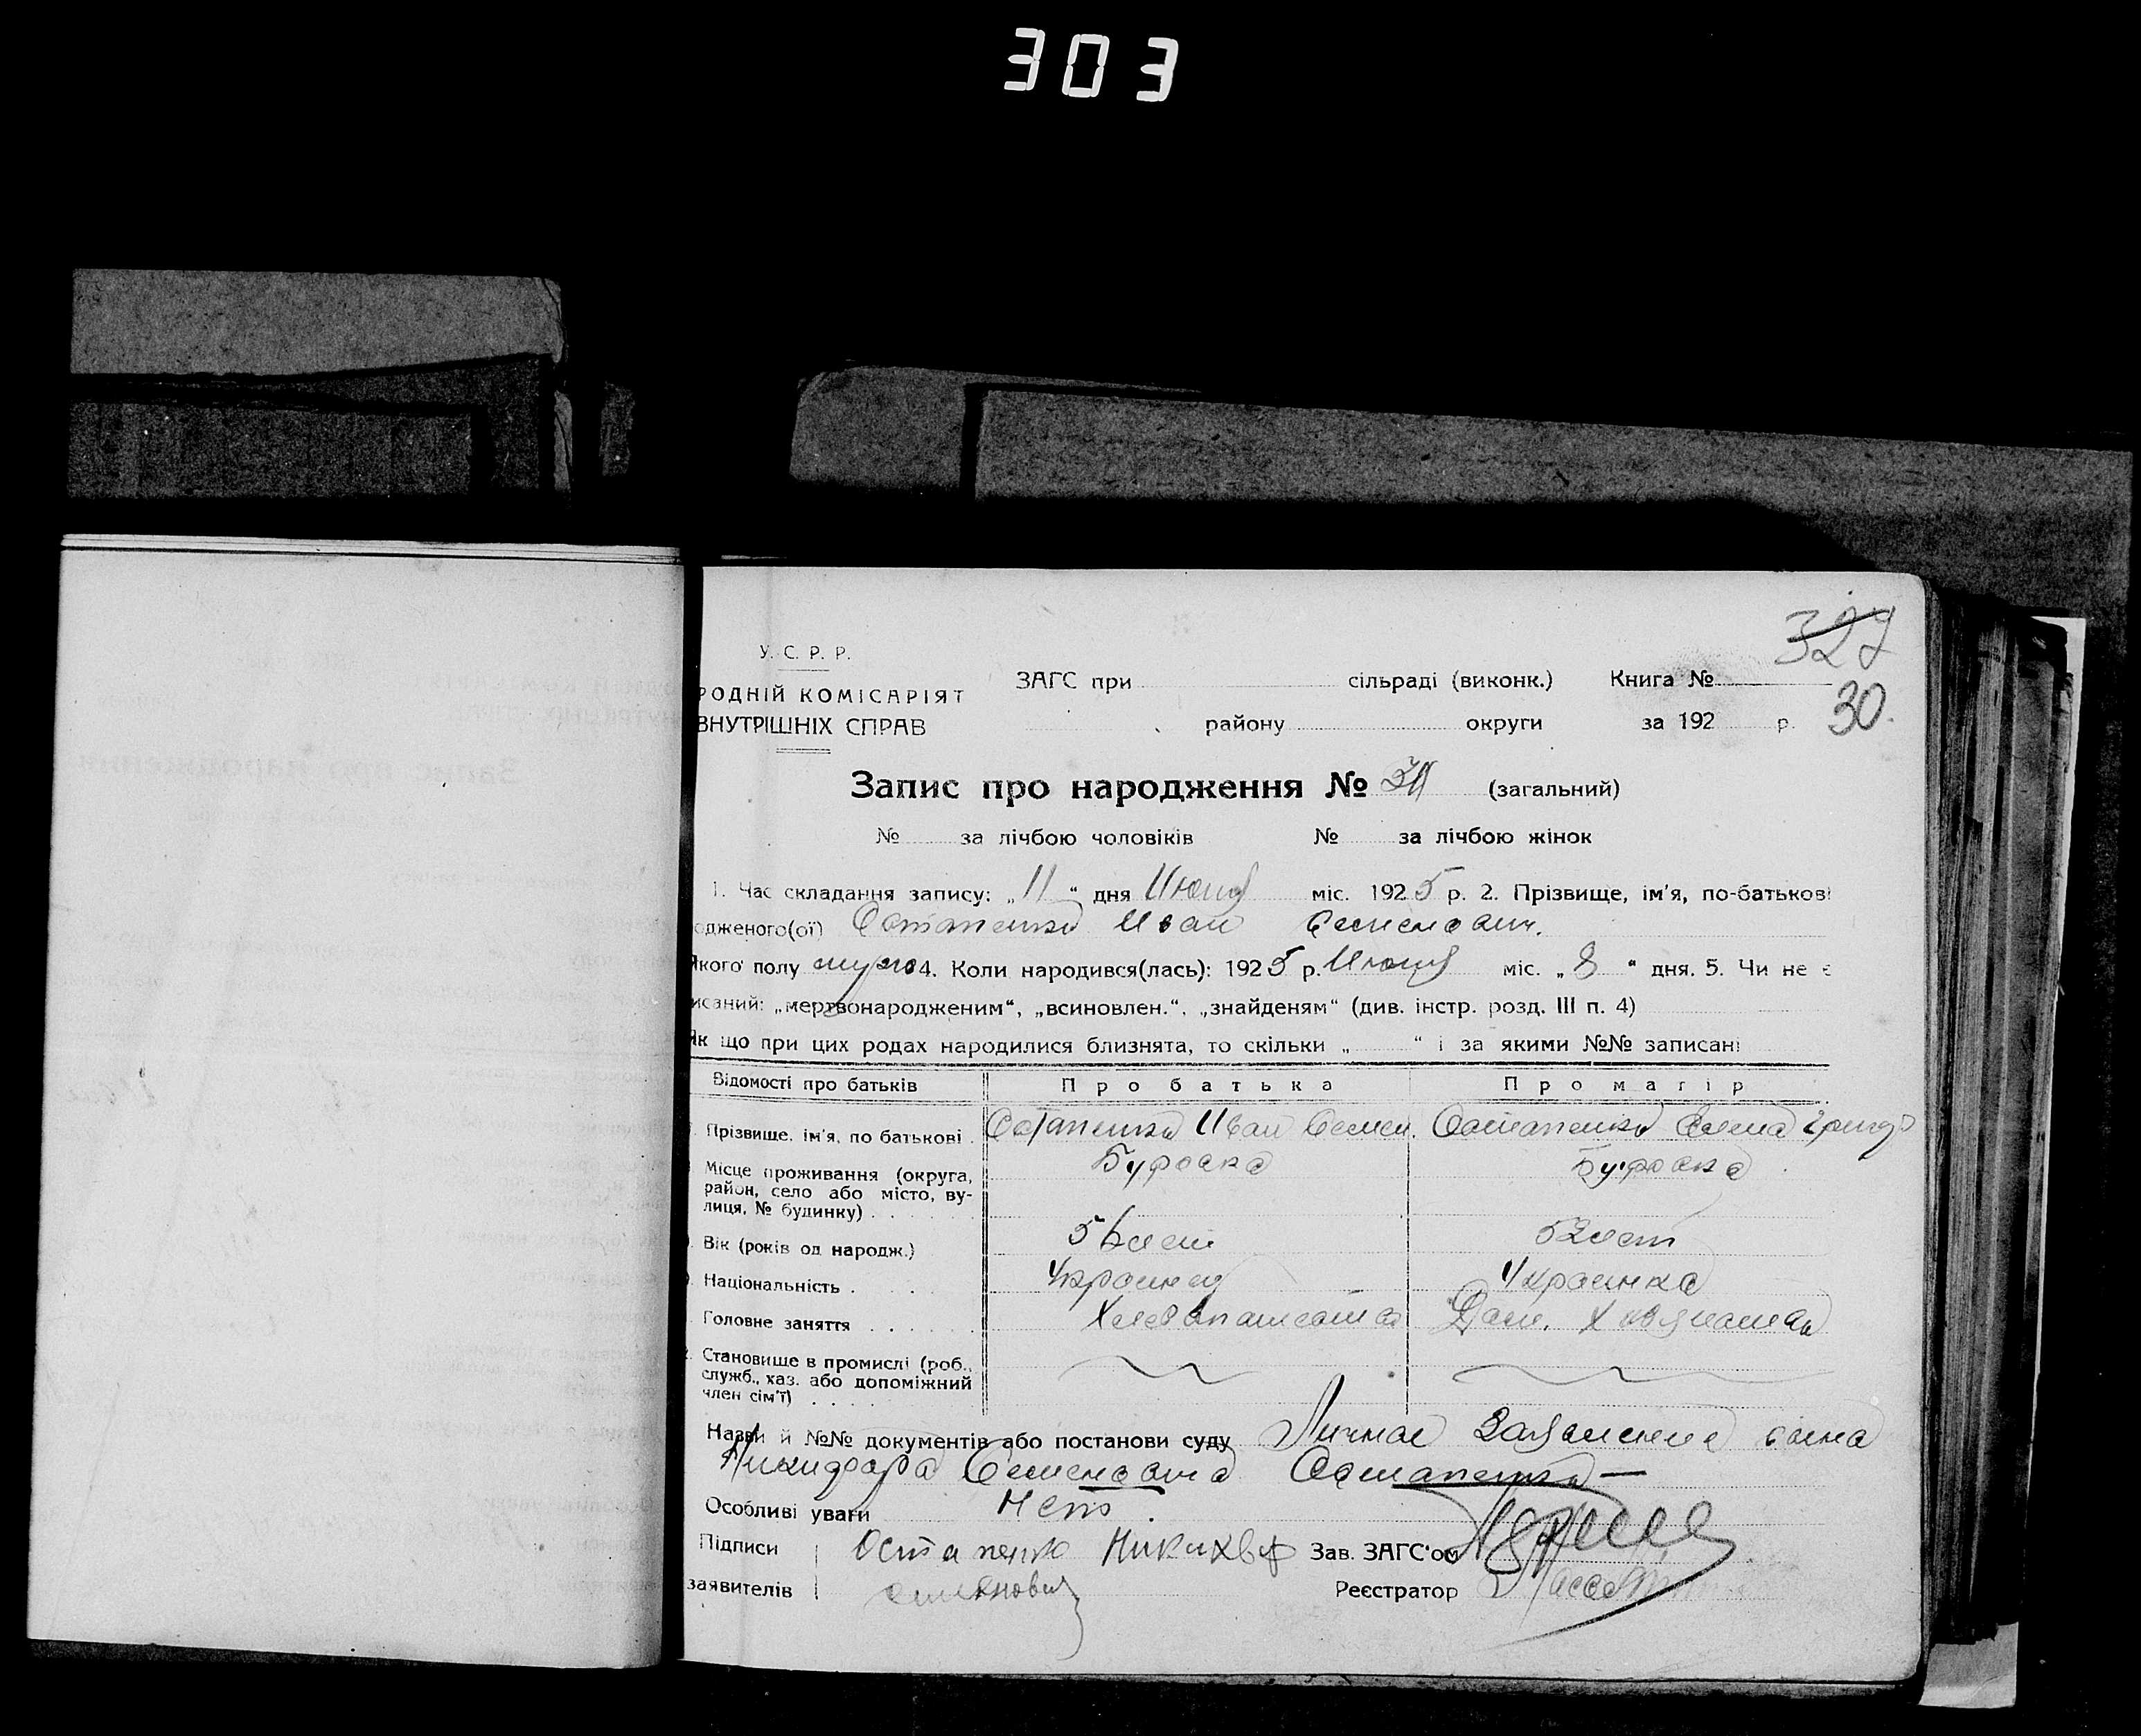 303
327
У. С. Р. Р.
РОДНІЙ КОМІСАРІЯТ
ВНУТРІШНІХ СПРАВ
ЗАГС при сільраді (виконк.) Книга №
району округи за 192 р.
30.
Запис про народження № (загальний)
№ за лічбою чоловіків № за лічбою жінок
1. Час складання запису: „11“ дня Июня міс. 1925 р. 2. Прізвище, ім'я, по-батькові
одженого(ої) Остапенко Иван Семенович.
Якого полу муж 4. Коли народився(лась): 1925 р. Июня міс. „8“ дня. 5. Чи не є
исаний: „мертвонародженим“, „всиновлен.“, „знайденям“ (див. інстр. розд. III п. 4)
Як що при цих родах народилися близнята, то скільки „ “ і за якими №№ записані
Відомості про батьків Про батька Про матір
Прізвище, ім'я, по батькові Остапенко Иван Семен. Остапенко Елена
Місце проживання (округа,
район, село або місто, ву-
лиця, № будинку)
Вік (років од народж.) 56 лет 52 лет
Національність Украинец Украинка
Головне заняття Хлебопашество Дом. Хозяйка
Становище в промислі (роб.,
служб., хаз. або допоміжний
член сім'ї)
Назви й №№ документів або постанови суду Личное Заявление сына
Никифора Семеновича Остапенко —
Особливі уваги Нет.
Підписи Остапенко Никихвф Зав. ЗАГС'ом
заявителів Реєстратор